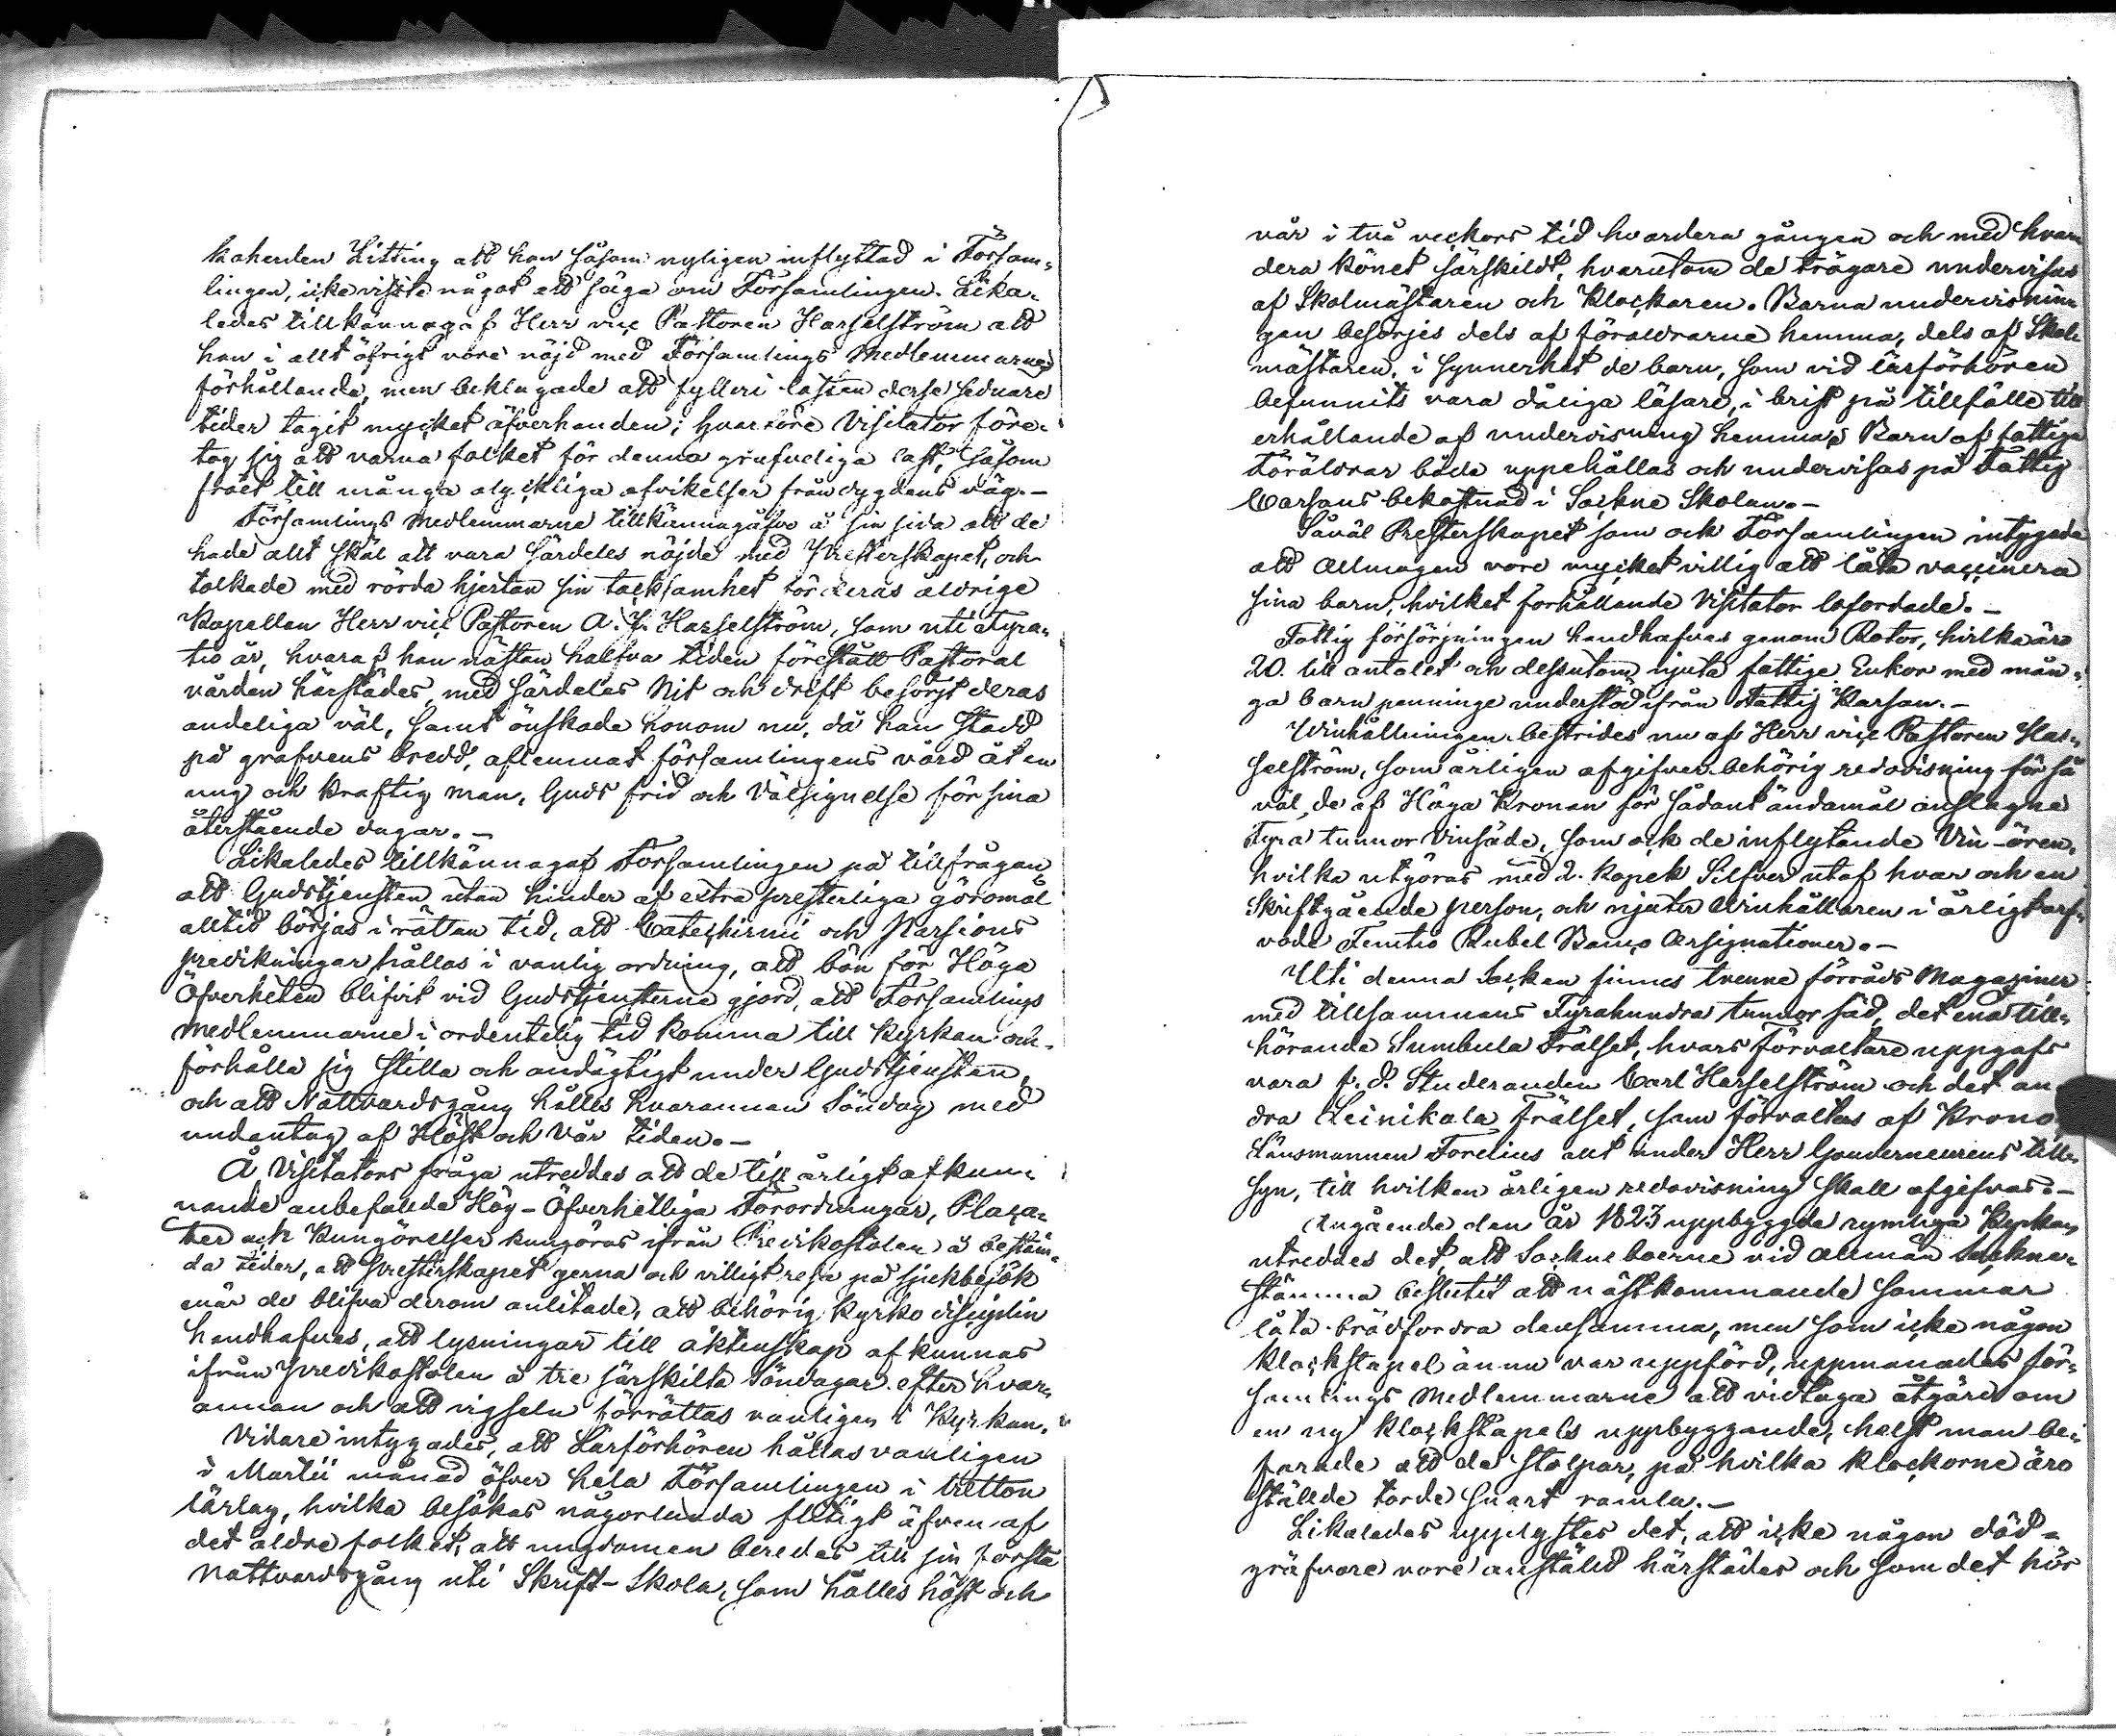 kaherden Litting att han såsom nyligen inflyttad i Försam-
lingen, icke visste något att säga om Församlingen. Lika-
ledes tillkännagaf Herr vice Pastoren Hasselström att
han i allt öfrigt vore nöjd med Församlings Medlemmarnes
förhållande, men beklagade att fylleri lasten desse sednare
tider tagit mycket öfverhanden; hvarföre Visitator före-
tog sig att varna folket för denna grufveliga last, såsom
fröet till många olyckliga afvikelser från dygdens väg.-
Församlings Medlemmarne tillkännagåfvo å sin sida att de
hade allt skäl att vara särdeles nöjde med Presterskapet, och
tolkade med rörda hjertan sin tacksamhet för deras åldrige
Kapellan Herr vice Pastoren A. J. Hasselström, som uti Fyra-
tio år, hvaraf han nästan halfva tiden förestått Pastoral
vården härstädes, med särdeles Nit och drift besörgt deras
andeliga väl, samt önskade honom nu, då han stadd
på grafvens bredd, aflemnat församlingens vård åt en
ung och kraftig man, Guds frid och Välsignelse för sina
återstående dagar.-
Likaledes tillkännagaf Församlingen på tillfrågan,
att Gudstjensten utan hinder af extra presterliga göromål
alltid börjas i rättan tid, att Catechismi och Passions
predikningar hållas i vanlig ordning, att bön för Höga
Öfverheten blifvit vid Gudstjensterne gjord, att Församlings
Medlemmarne i ordentelig tid komma till Kyrkan och
förhålla sig stilla och andägtigt under Gudstjensten,
och att Nattvardsgång hålles hvarannan Söndag med
undantag af Höst och Vår tiden.-
Å Visitators fråga utreddes att de till årligt afkun-
nande anbefallde Hög-Öfverhetliga Förordningar, Placa-
ter och Kungörelser kungöras ifrån Predikostolen å bestäm-
da tider, att presterskapet gerna och villigt resa på sjukbesök
enär de blifva derom anlitade, att behörig kyrko disciplin
handhafves, att lysningar till äktenskap afkunnas
ifrån predikostolen å tre särskilta Söndagar efter hvar-
annan och att vigseln förrättas vanligen i Kyrkan.
Vidare intygades, att Läsförhören hållas vanligen
i Martii månad öfver hela Församlingen i tretton
läslag, hvilka besökas någorlunda flitigt äfven af
det äldre folket, att ungdomen beredes till sin första
Nattvardsgång uti Skrift-Skola, som hålles höst och
vår i två veckors tid hvardera gången och med hvar-
dera könet särskildt, hvarutom de trögare undervisas
af Skolmästaren och Klockaren. Barna undervisnin-
gen besörjes dels af föräldrarne hemma, dels af Skol-
mästaren, i synnerhet de barn, som vid läsförhören
befunnits vara dåliga läsare, i brist på tillfälle till
erhållande af undervisning hemma; Barn af fattiga
Föräldrar både uppehållas och undervisas på Fattig
Cassans bekostnad i Sockne Skolan.-
Såväl Presterskapet som och Församlingen intygade
att Allmogen vore mycket villig att låta vaccinera
sina barn, hvilket förhållande Visitator lofordade.-
Fattig försörjningen handhafves genom Rotor, hvilka äro
20. till antalet och dessutom njuta fattige Enkor med mån-
ga barn penninge understöd ifrån Fattig Kassan.-
Vinhållningen bestrides nu af Herr vice Pastoren Has-
selström, som årligen afgifver behörig redovisning för så
väl, de af Höga Kronan för sådant ändamål anslagne
Fyra tunnor Vinsäde, som ock de inflytande Vin-ören,
hvilka utgöras med 2. Kopek Silfver utaf hvar och en
Skriftgående person, och njuter Vinhållaren i årligt arf-
vode Femtio Rubel Banco Assignationer.-
Uti denna Socken finnes tvenne förråds Magaziner
med tillsammans Fyrahundra tunnor säd, det ena till-
hörande Sumbula Frälset, hvars Förvaltare uppgafs
vara f. d. Studeranden Carl Hasselström och det an-
dra Leinikala Frälset, som förvaltas af Krono
Länsmannen Forelius allt under Herr Gouverneurens till-
syn, till hvilken årligen redovisning skall afgifvas.-
Angående den år 1823 uppbyggda rymliga Kyrkan,
utreddes det, att Sockneboerne vid allmän Sockne-
stämma beslutit att nästkommande Sommar
låta brädfordra densamma, men som icke någon
Klockstapel ännu var uppförd, uppmanades för-
samlings Medlemmarne att vidtaga åtgärd om
en ny Klockstapels uppbyggande, helst man be-
farade att de stolpar, på hvilka klockorne äro
ställde torde snart ramla.-
Likaledes upplystes det, att icke någon död-
gräfvare vore anställd härstädes och som det hör